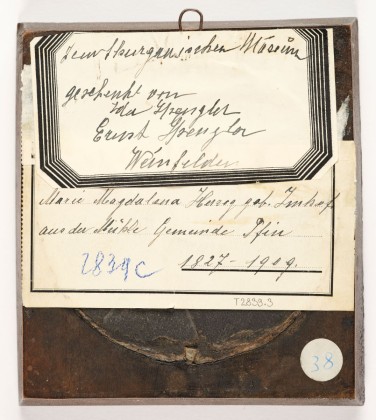 Dem Thurgauischen Museum
geschenkt von
Ida Spengler
Ernst Spengler
Weinfelden
Marie Magdalena Herzog geb. Imhof
aus der Mühle Gemeinde Pfin
2839c
1827-1909.
T2839-3
38